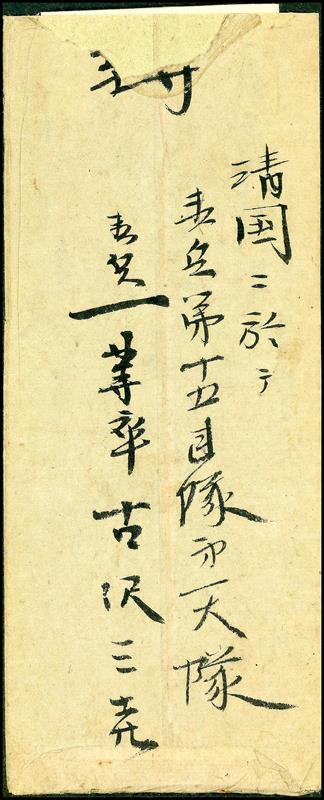 封
清国ニ於テ
歩兵第十五聯隊第一大隊
歩兵一等卒古沢三尭